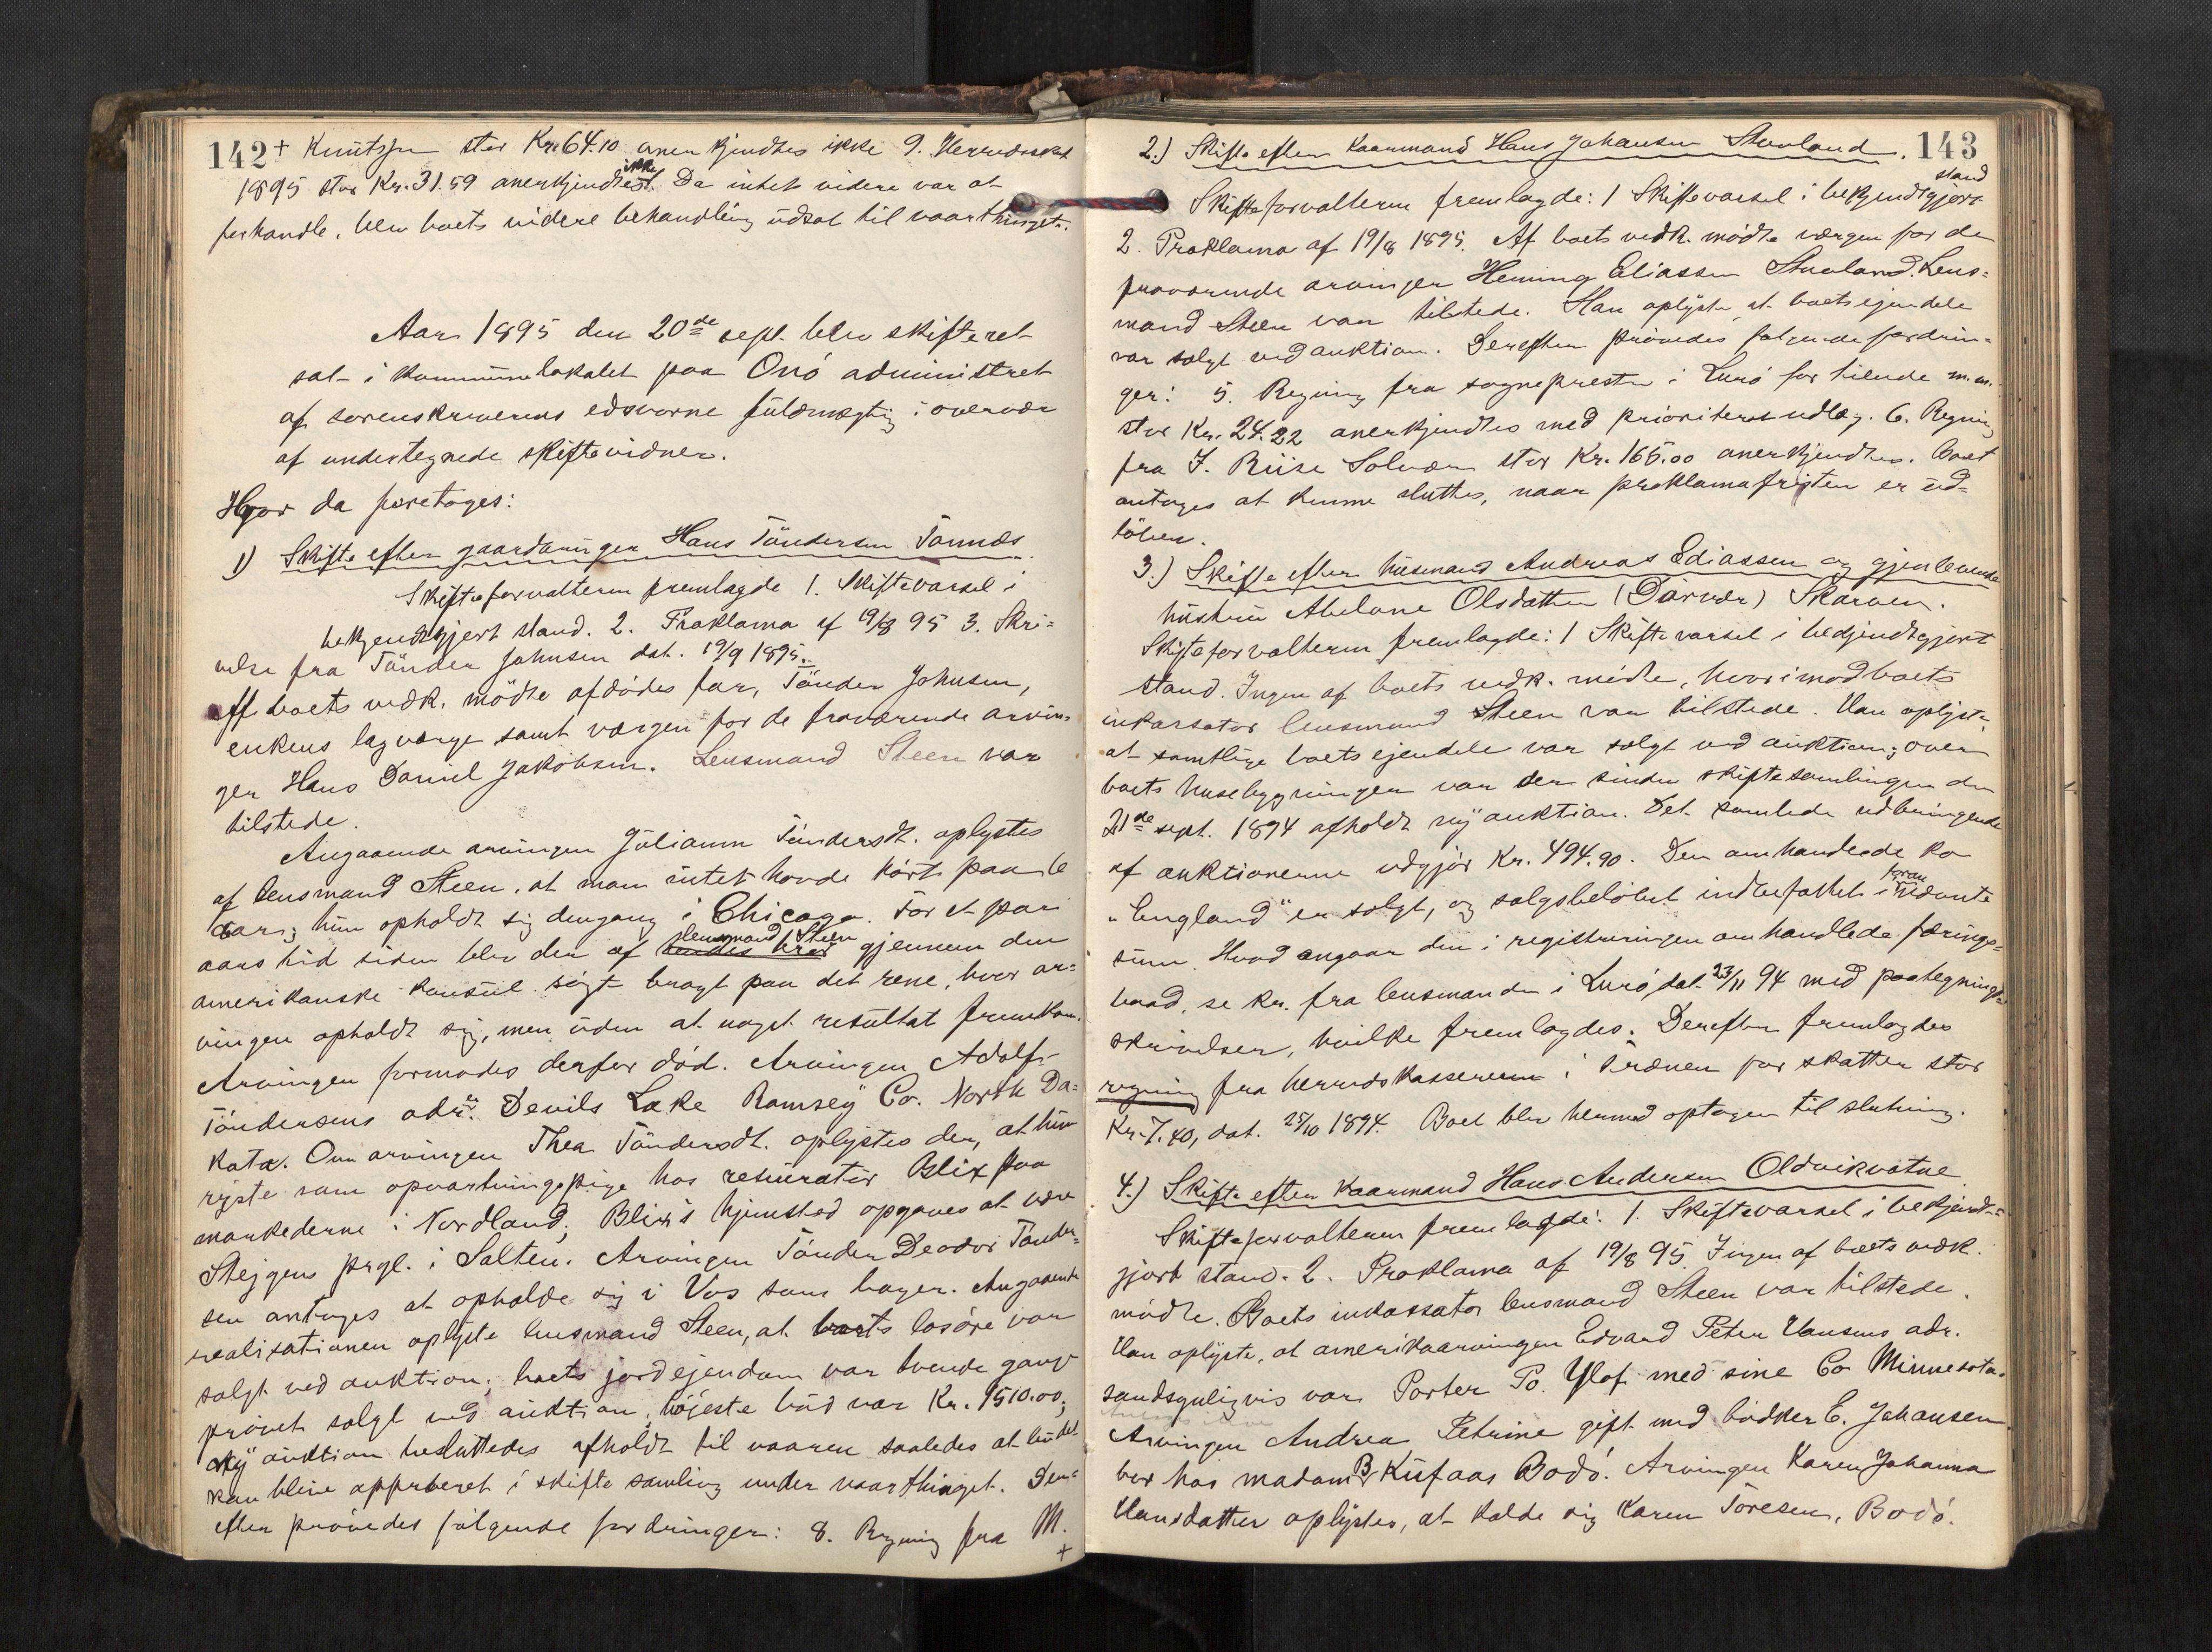 142 + Knutsen stor Kr. 64.10 anerkjendtes ikke 9. Herredsskat
1895 stor Kr. 31.59 anerkjendtes ikke. Da intet videre var at
forhandle, blev boets videre behandling udsat til vaarthinget.
Aar 1895 den 20de sept. blev skifteret
sat i kommunelokalet paa Onö administret
af sorenskriverens edsvorne fuldmægtig i overvær
af undertegnede skiftevidner.
Hvor da foretoges:
1) Skifte efter gaardbruger Hans Töndersen Tonnes
Skifteforvalteren fremlagde 1. Skiftevarsel i
bekjendtgjort stand. 2. Proklama af 19/8 95 3. Skri=
velse fra Tönder Johnsen dat. 19/9 1895.
Af boets vedk. mödte afdödes far, Tönder Johnsen,
enkens lagværge samt værgen for de fraværende arvin=
ger Hans Daniel Jakobsen. Lensmand Steen var
tilstede.
Angaaende arvingen Juliann Töndersdt. oplystes
af lensmand Steen, at man intet havde hört paa 6
aar; hun opholdt sig dengang i Chicago. For et par
aars tid siden blev der af lensmand Steen gjennem den
amerikanske konsul sögt bragt paa det rene, hvor ar=
vingen opholdt sig, men uden at noget resultat fremkom.
Arvingen formodes derfor död. Arvingen Adolf
Töndersens adr. er Devils Lake Ramsey Co. North Da=
kota. Om arvingen Thea Töndersdt. oplystes der, at hun
rejste som opvartningspige hos restauratör Blix paa
markederne i Nordland; Blix's hjemsted opgaves at være
Stejgens prgl. i Salten. Arvingen Tönder Deodor Tönder=
sen antages at opholde sig i Vos som bager. Angaaende
realisationen oplyste lensmand Steen, at boets lösöre var
solgt ved auktion; boets jordejendom var tvende gange
prövet solgt ved auktion, höjeste bud var Kr. 1510.00;
ny auktion besluttedes afholdt til vaaren saaledes at budet
kan blive approberet i skiftesamling under vaarthinget. Der=
efter prövedes fölgende fordringer: 8. Regning fra M.
+
2.) Skifte efter kaarmand Hans Johansen Stuvland. 143
Skifteforvalteren fremlagde: 1 Skiftevarsel i bekjendtgjort stand
2. Proklama af 19/8 1895. Af boets vedk. mödte værgen for de
fraværende arvinger Heming Eliassen Stuvland. Lens=
mand Steen var tilstede. Han oplyste, at boets ejendele
var solgt ved auktion. Derefter prövedes fölgende fordrin=
ger: 5. Regning fra sognepresten i Lurö for tiende m.m.
stor Kr. 24.22 anerkjendtes med prioriteret udlæg. 6. Regning
fra J. Riise Solvær stor Kr. 165.00 anerkjendtes. Boet
antages at kunne sluttes, naar proklamafristen er ud=
löben.
3.) Skifte efter husmand Andreas Ediassen og gjenlevende
hustru Abelone Olsdatter (Dörvær) Skarven.
Skifteforvalteren fremlagde: 1 Skiftevarsel i bedjendtgjort
stand. Ingen af boets vedk. mödte, hvorimod boets
inkassator lensmand Steen var tilstede. Han oplyste
at samtlige boets ejendele var solgt ved auktion; over
boets husebygninger var der siden skiftesamlingen den
21de sept. 1894 afholdt ny auktion. Det samlede udbringende
af auktionerne udgjör Kr. 494.90. Den omhandlede ko
"England" er solgt, og salgsbelöbet indbefattet i foran nævnte
sum. Hvad angaar den i registreringen omhandlede færings=
baad, se kr. fra lensmanden i Lurö, dat. 23/11 94 med paategnings=
skrivelser, hvilke fremlagdes. Derefter fremlagdes
regning fra herredskassereren i Trænen for skatter stor
Kr. 7.40, dat. 25/10 1894. Boet blev hermed optagen til slutning.
4.) Skifte efter kaarmand Hans Andersen Oldvikvatne
Skifteforvalteren fremlagde: 1. Skiftevarsel i bekjendt=
gjort stand. 2. Proklama af 19/8 95. Ingen af boets vedk.
mödte. Boets inkassator lensmand Steen var tilstede.
Han oplyste, at amerikaarvingen Edvard Peter Hansens adr.
sandsynligvis var Porter Po. Ylof med sine Co Minnesota.
Arvingen Andrea Petrine gift med bödker E. Johansen
bor hos madam B. Kufaas Bodö. Arvingen Karen Johanna
Hansdatter oplystes, at kalde sig Karen Toresen, Bodö.